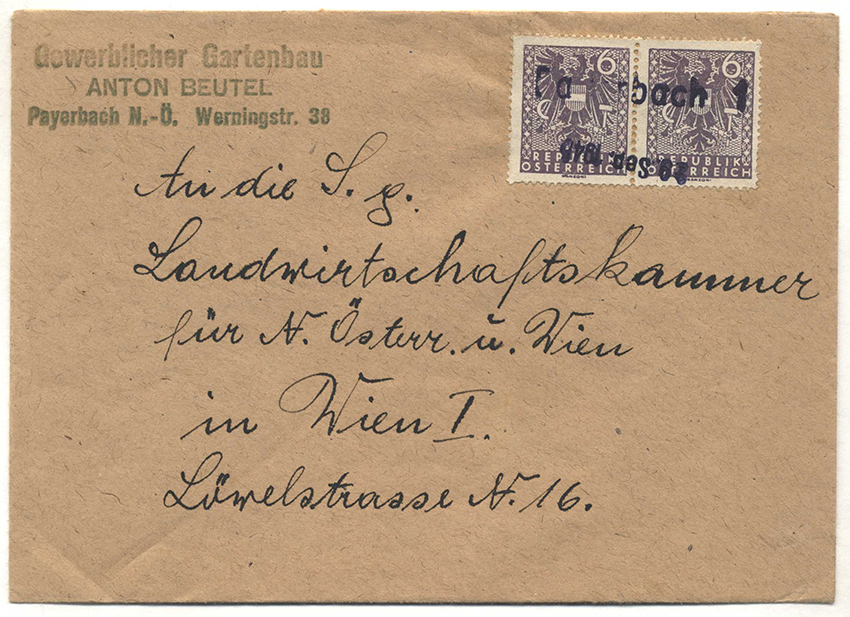 Gewerblicher Gartenbau
ANTON BEUTEL
Payerbach N.-Ö. Werningstr. 38
6 6
bach 1
Sep. 1946
REPUBLIK ÖSTERREICH
REPUBLIK ÖSTERREICH
An die S. g.
Landwirtschaftskammer
für N. Österr. u. Wien
in Wien I.
Löwelstrasse N. 16.